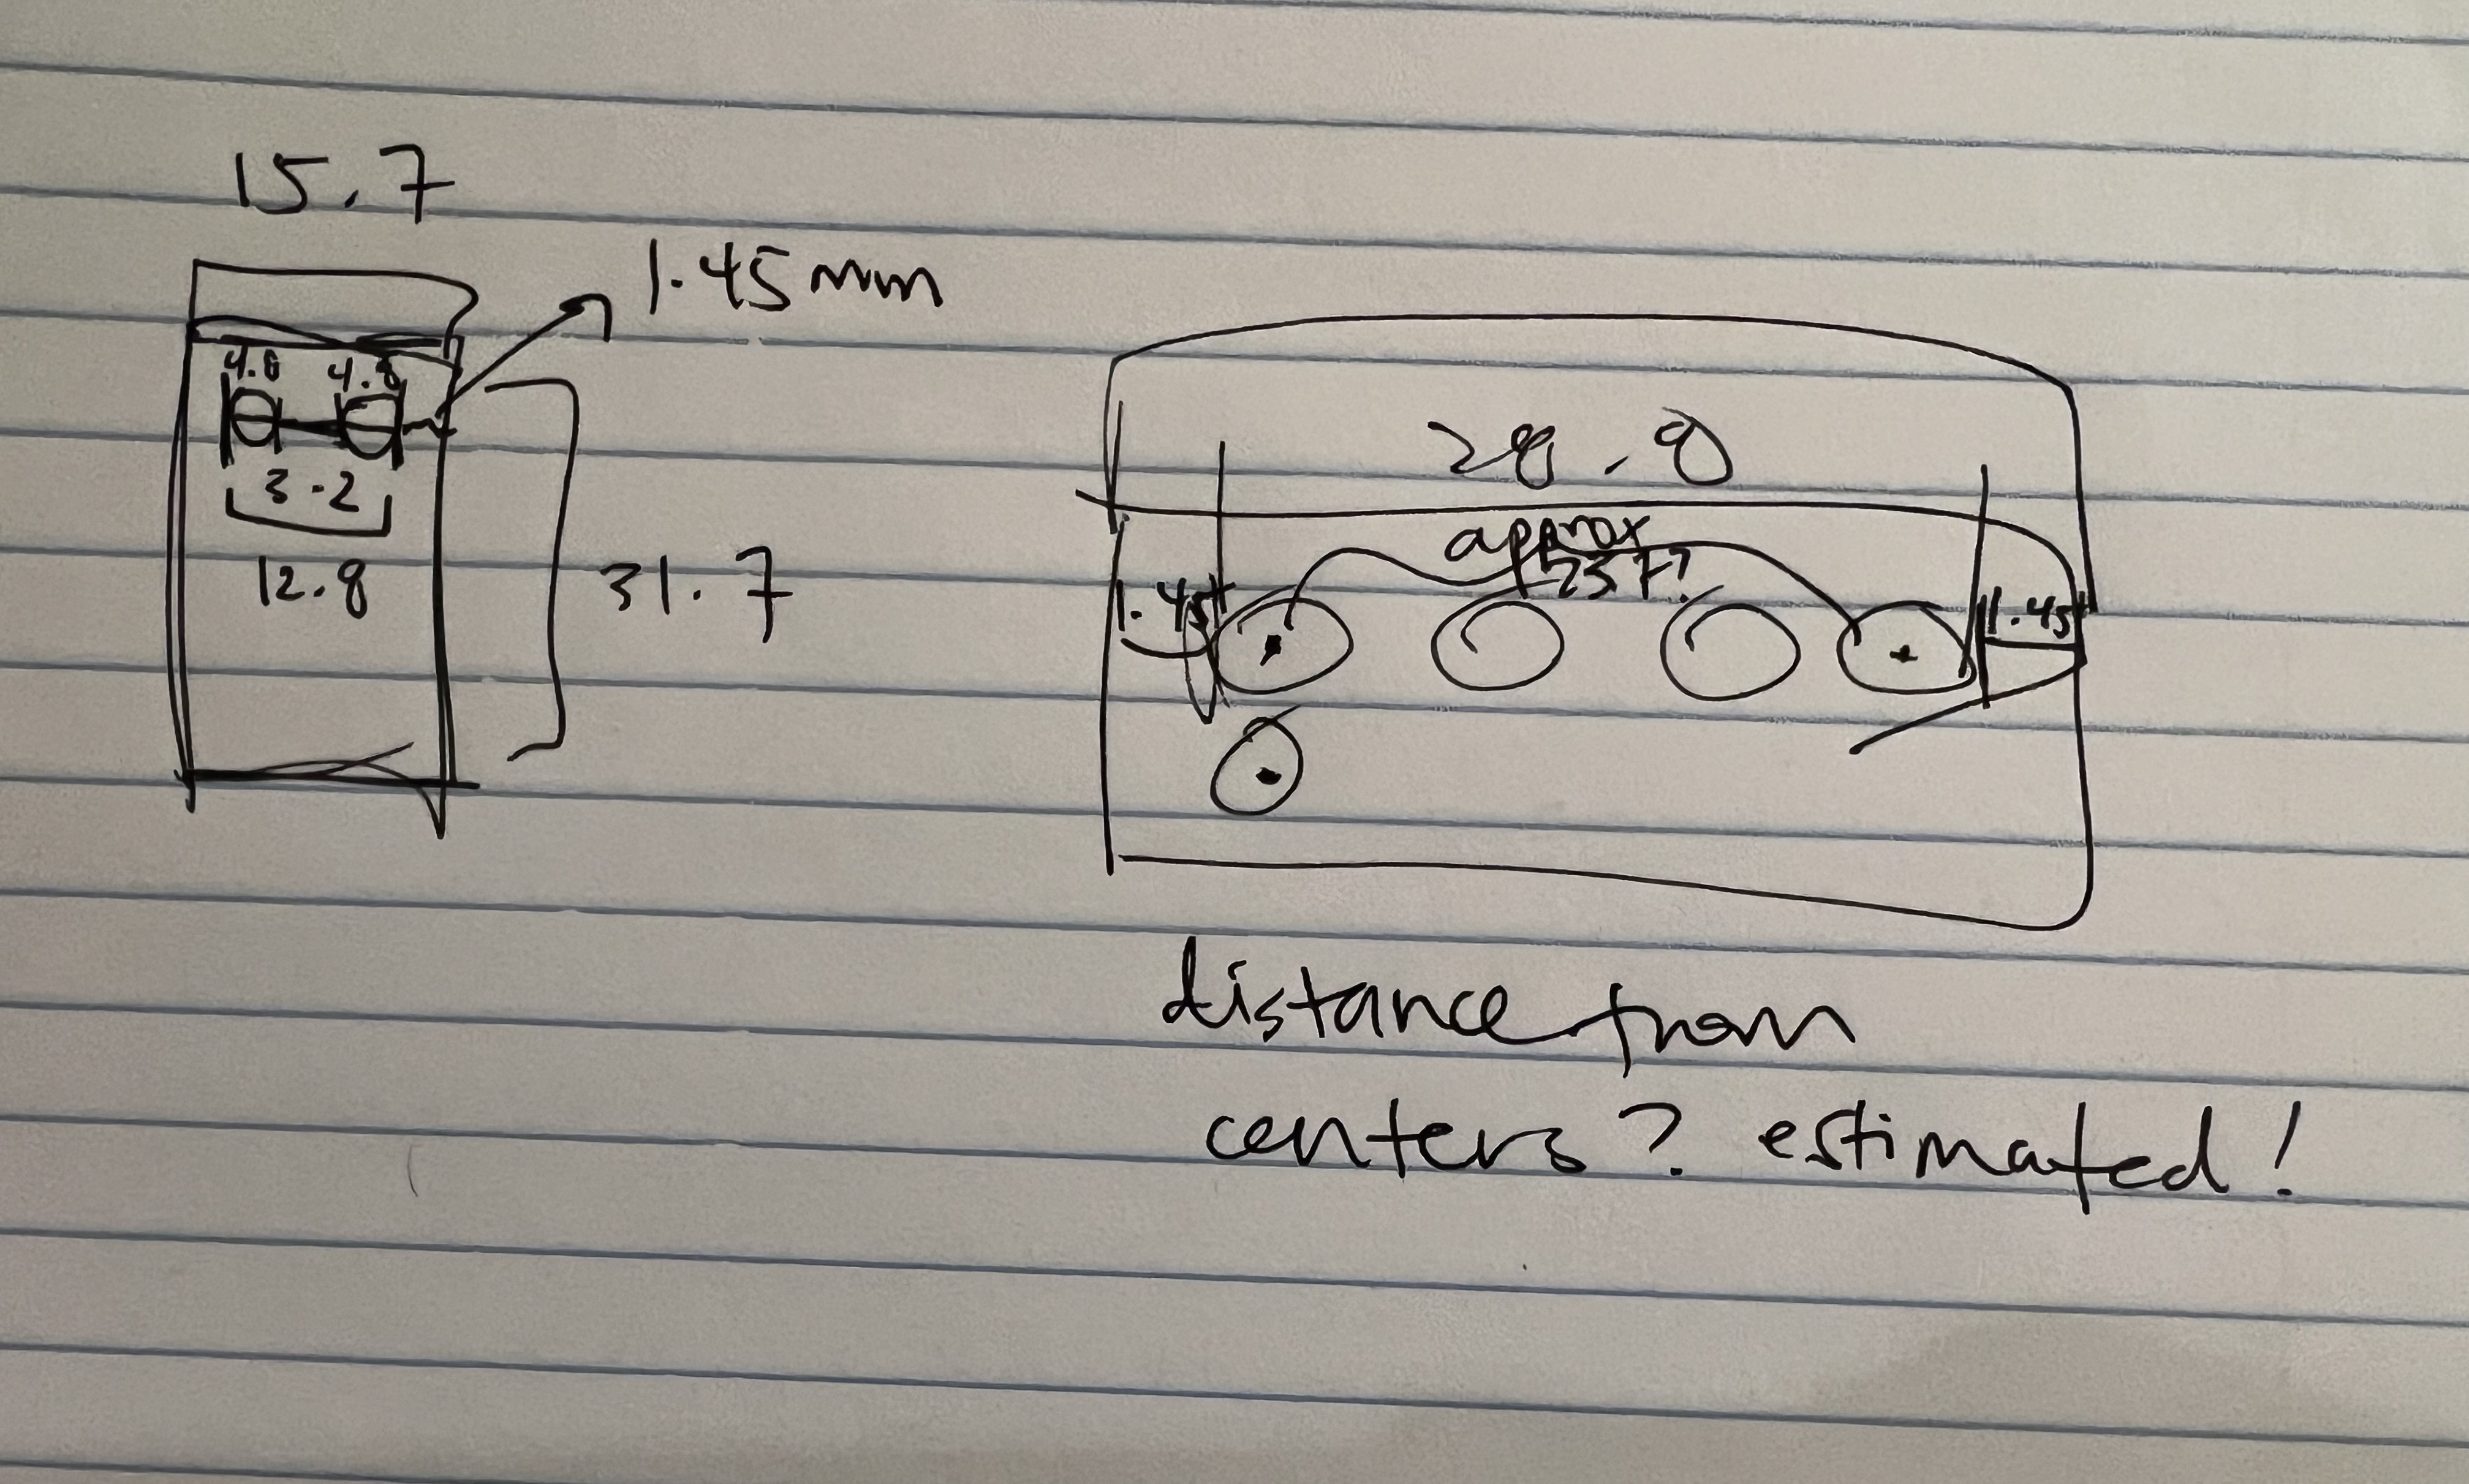 15.7
1.45 mm
4.8 4.8
3.2
12.8
31.7
28.8
approx
1.45
1.45
distance from
centers? estimated!